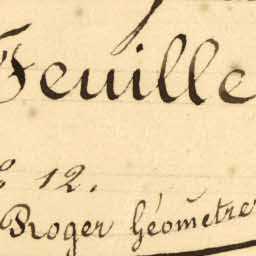 Feuille
12.
Roger Géomètre